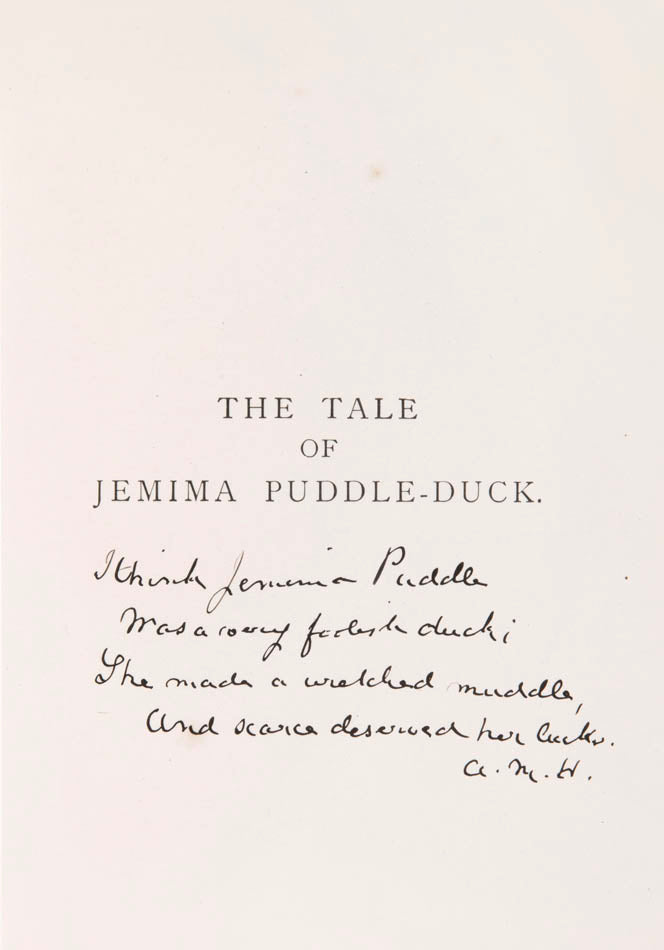 THE TALE
OF
JEMIMA PUDDLE-DUCK.
I think Jemima Puddle
Was a very foolish duck;
She made a wretched muddle,
And scarce deserved her luck.
A. M. H.